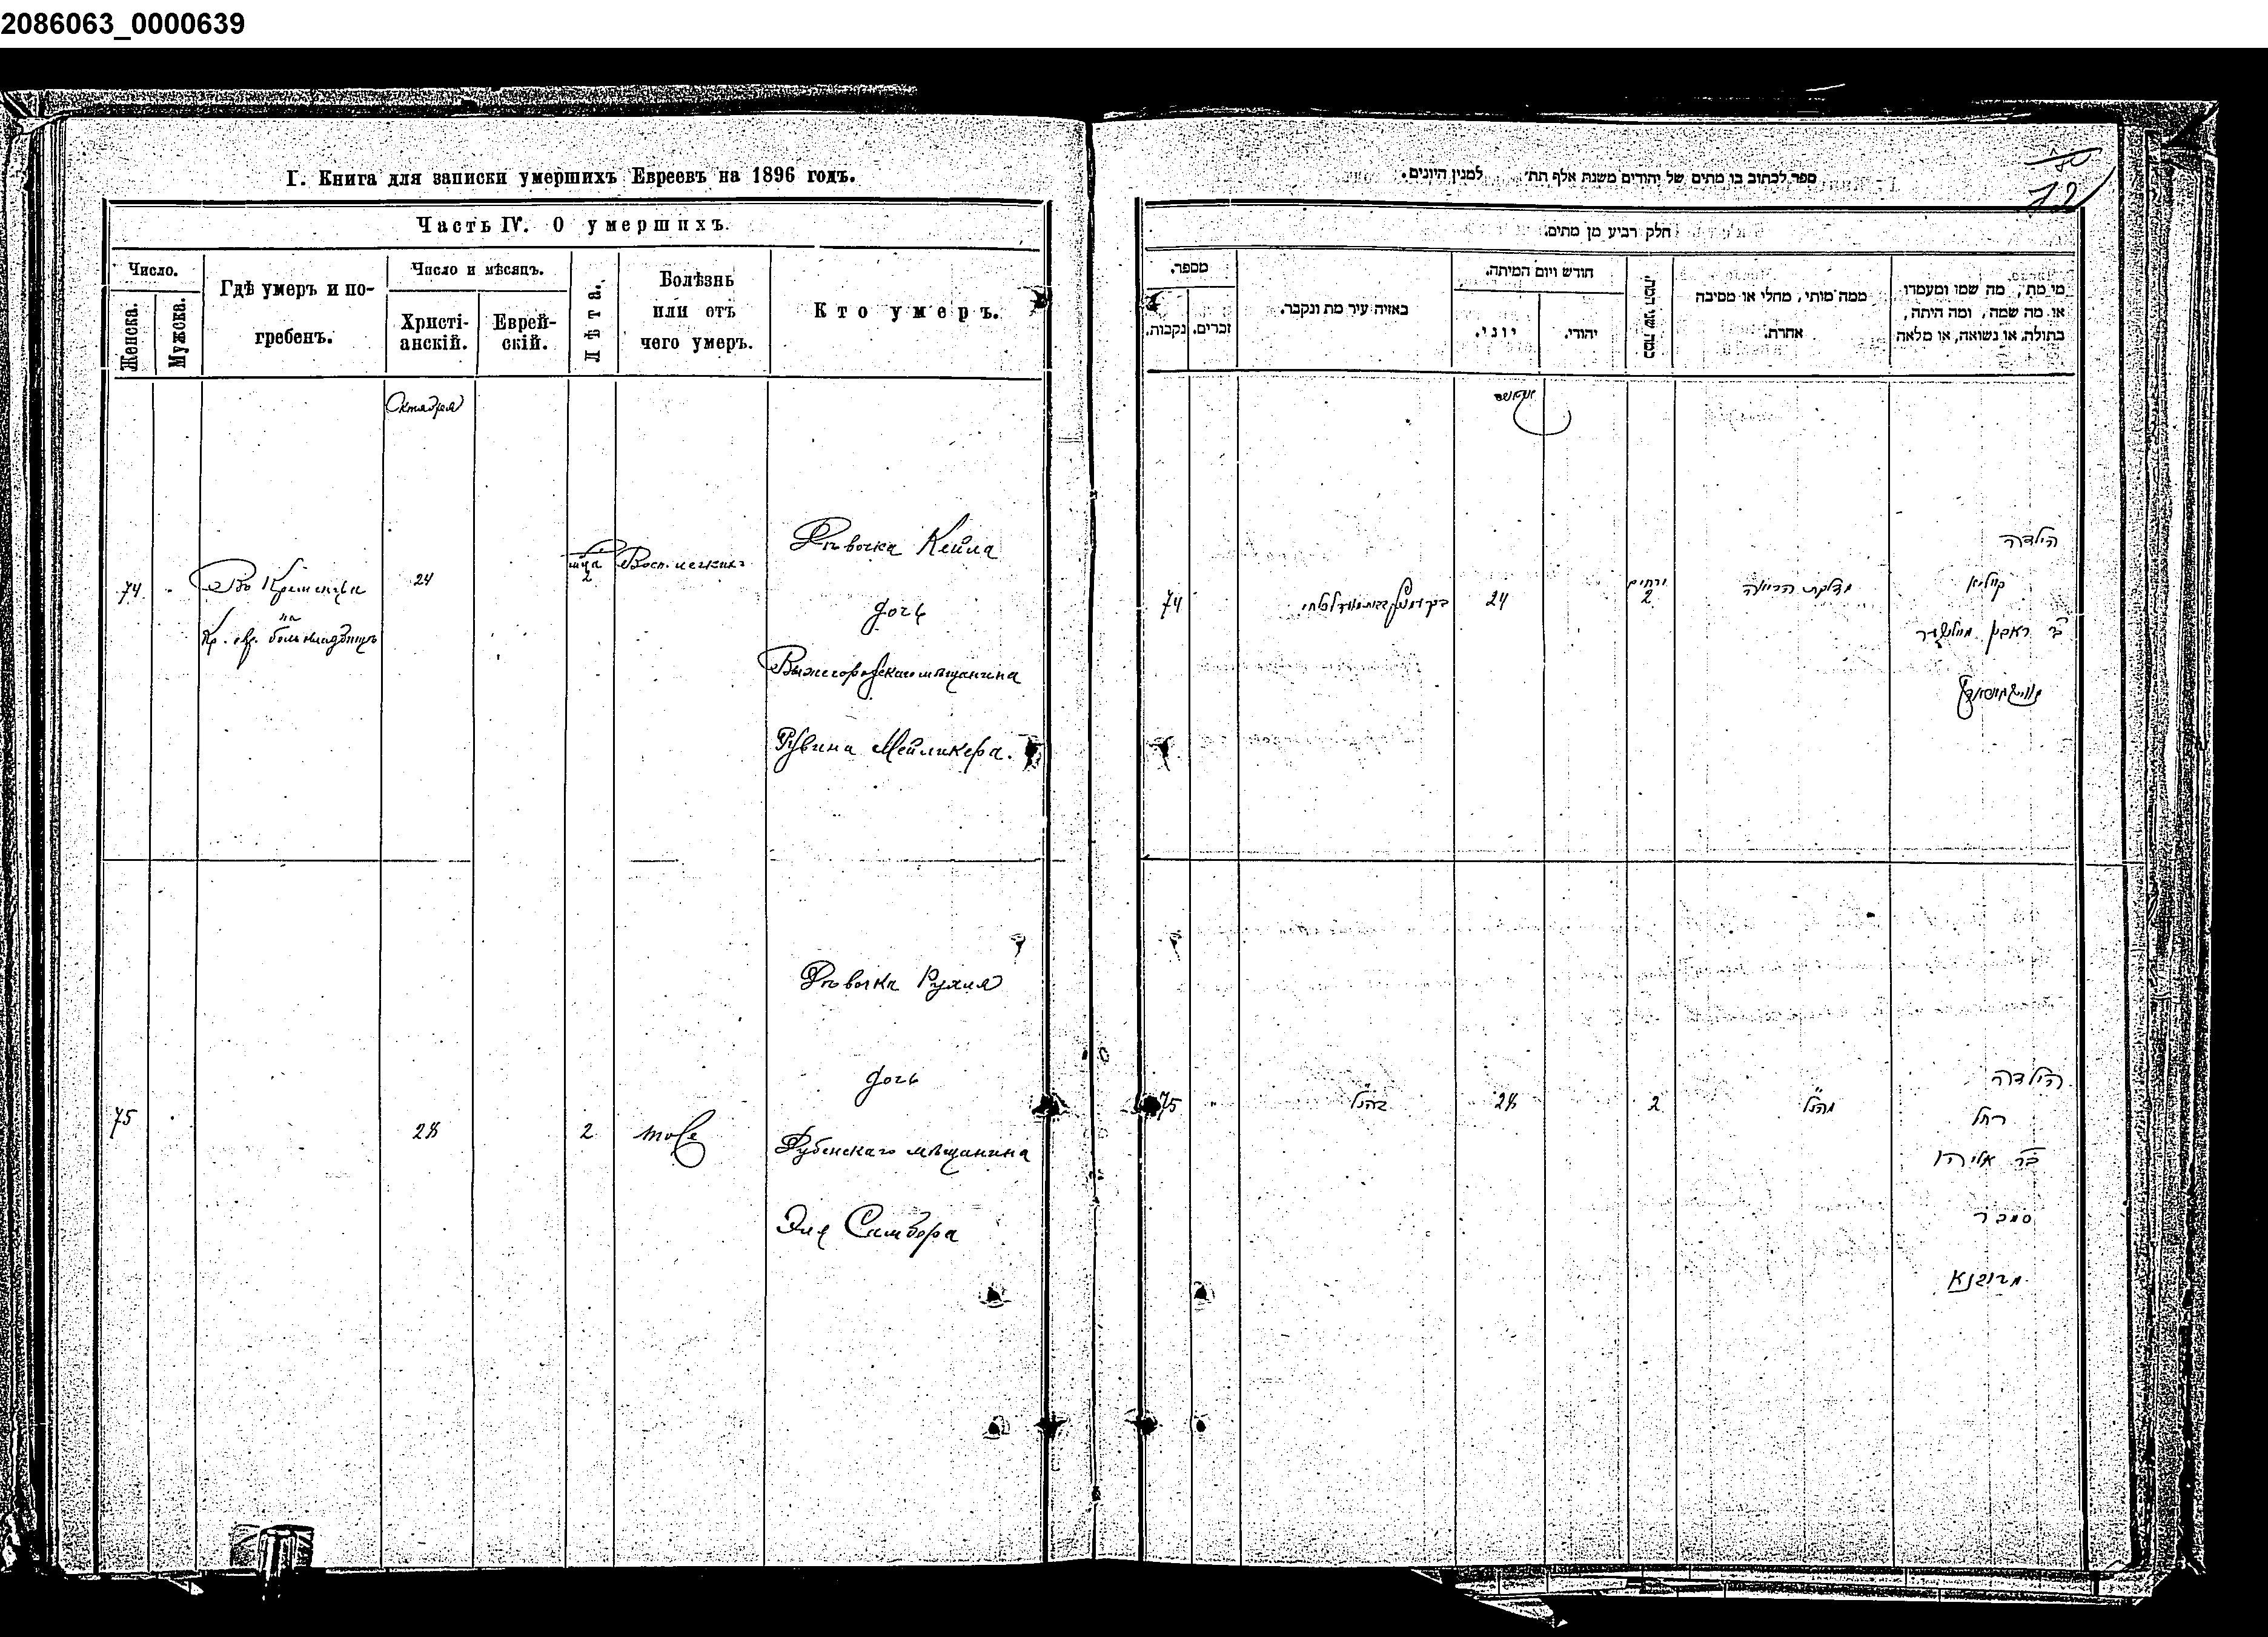 2086063_0000639
Г. Книга для записки умершихъ Евреевъ на 1896 годъ.
Часть IV. О умершихъ.
Число.
Женска.
Мужска.
Гдѣ умеръ и по-
гребенъ.
Число и мѣсяцъ.
Христі-
анскій.
Еврей-
скій.
Лѣта.
Болѣзнь
или отъ
чего умеръ.
Кто умеръ.
Октября
74
Въ Кременцѣ
на
Кр. евр. кладбищѣ
24
мца
2
Восп. легкихъ
Дѣвочка Кейла
дочь
Вышегородскаго мѣщанина
Рувина Мейликера.
75
28
2
тоже
Дѣвочка Рухля
дочь
Дубенскаго мѣщанина
Эля Самбора
ספר לכתוב בו מתים של יהודים משנת אלף תת׳ למנין היונים.
חלק רביעי מן מתים.
מספר.
נקבות.
זכרים.
באיזה עיר מת ונקבר.
חודש ויום המיתה.
יוני.
יהודי.
כמה שני המת.
ממה מותי, מחלי או מסיבה
אחרת.
מי מת, מה שמו ומעמדו
או מה שמה, ומה היתה,
בתולה או נשואה, או מלאה
74
24
ירחים
2
מדלקת הריאה
הילדה
קיילא
בר ראובין מייליקער
75
כהנ״ל
28
2
מהנ״ל
הילדה
רחל
בר אליהו
סמבר
מדובנא